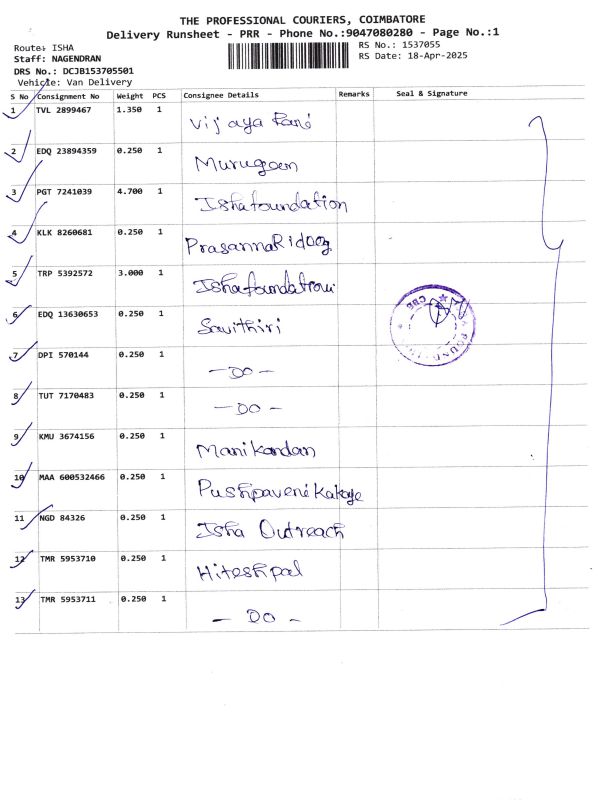 THE PROFESSIONAL COURIERS, COIMBATORE
Delivery Runsheet - PRR - Phone No.:9047080280 - Page No.:1
Route: ISHA
RS No.: 1537055
Staff: NAGENDRAN
RS Date: 18-Apr-2025
DRS No.: DCJB153705501
Vehicle: Van Delivery
S No Consignment No Weight PCS Consignee Details Remarks Seal & Signature
1 TVL 2899467 1.350 1 Vijaya Rani
2 EDQ 23894359 0.250 1 Murugan
3 PGT 7241039 4.700 1 Isha foundation
4 KLK 8260681 0.250 1 Prasanna
5 TRP 5392572 3.000 1 Isha foundation
6 EDQ 13630653 0.250 1 Savithiri
7 DPI 570144 0.250 1 - DO -
8 TUT 7170483 0.250 1 - DO -
9 KMU 3674156 0.250 1 Manikandan
10 MAA 600532466 0.250 1 Pushpaveni
11 NGD 84326 0.250 1 Isha Outreach
12 TMR 5953710 0.250 1 Hiteshpal
13 TMR 5953711 0.250 1 - DO -
CBE